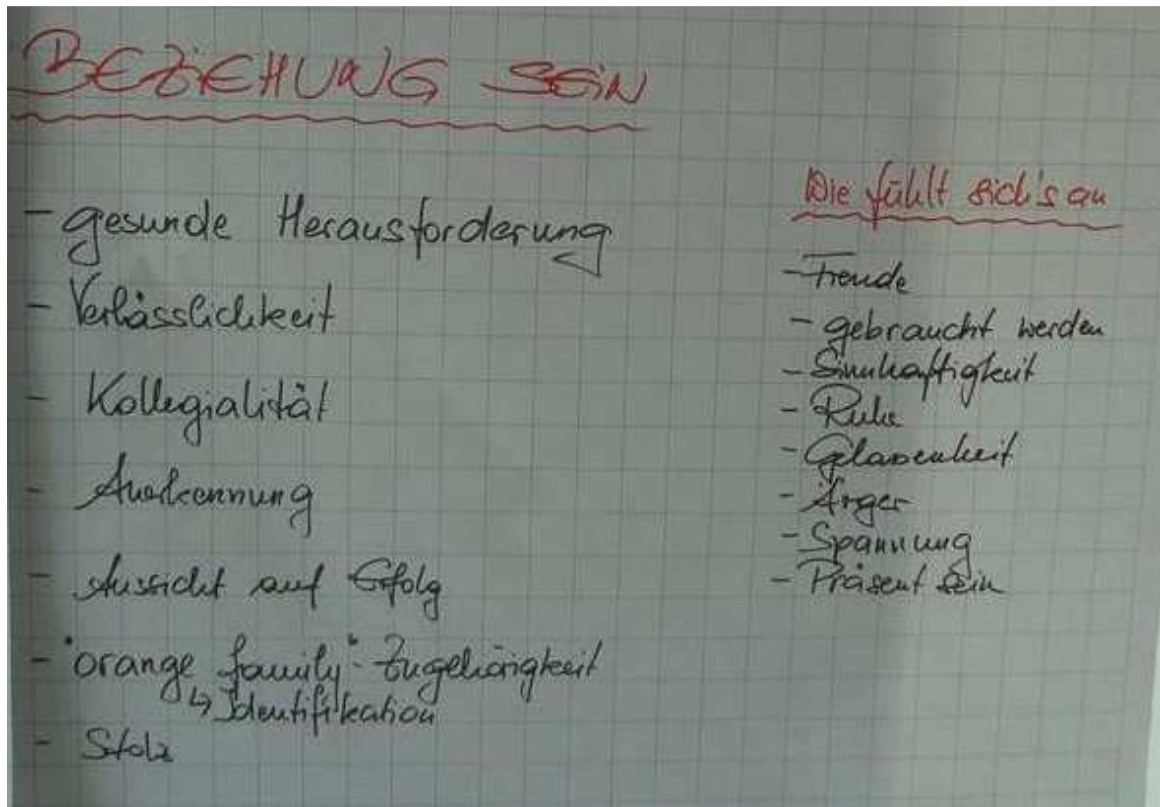 BEZIEHUNG SEIN
- gesunde Herausforderung
- Verlässlichkeit
- Kollegialität
- Anerkennung
- Aussicht auf Erfolg
- "orange family"-Zugehörigkeit
↳ Identifikation
- Stolz
Wie fühlt sich's an
- Freude
- gebraucht werden
- Sinnhaftigkeit
- Ruhe
- Gelassenheit
- Ärger
- Spannung
- Präsent sein